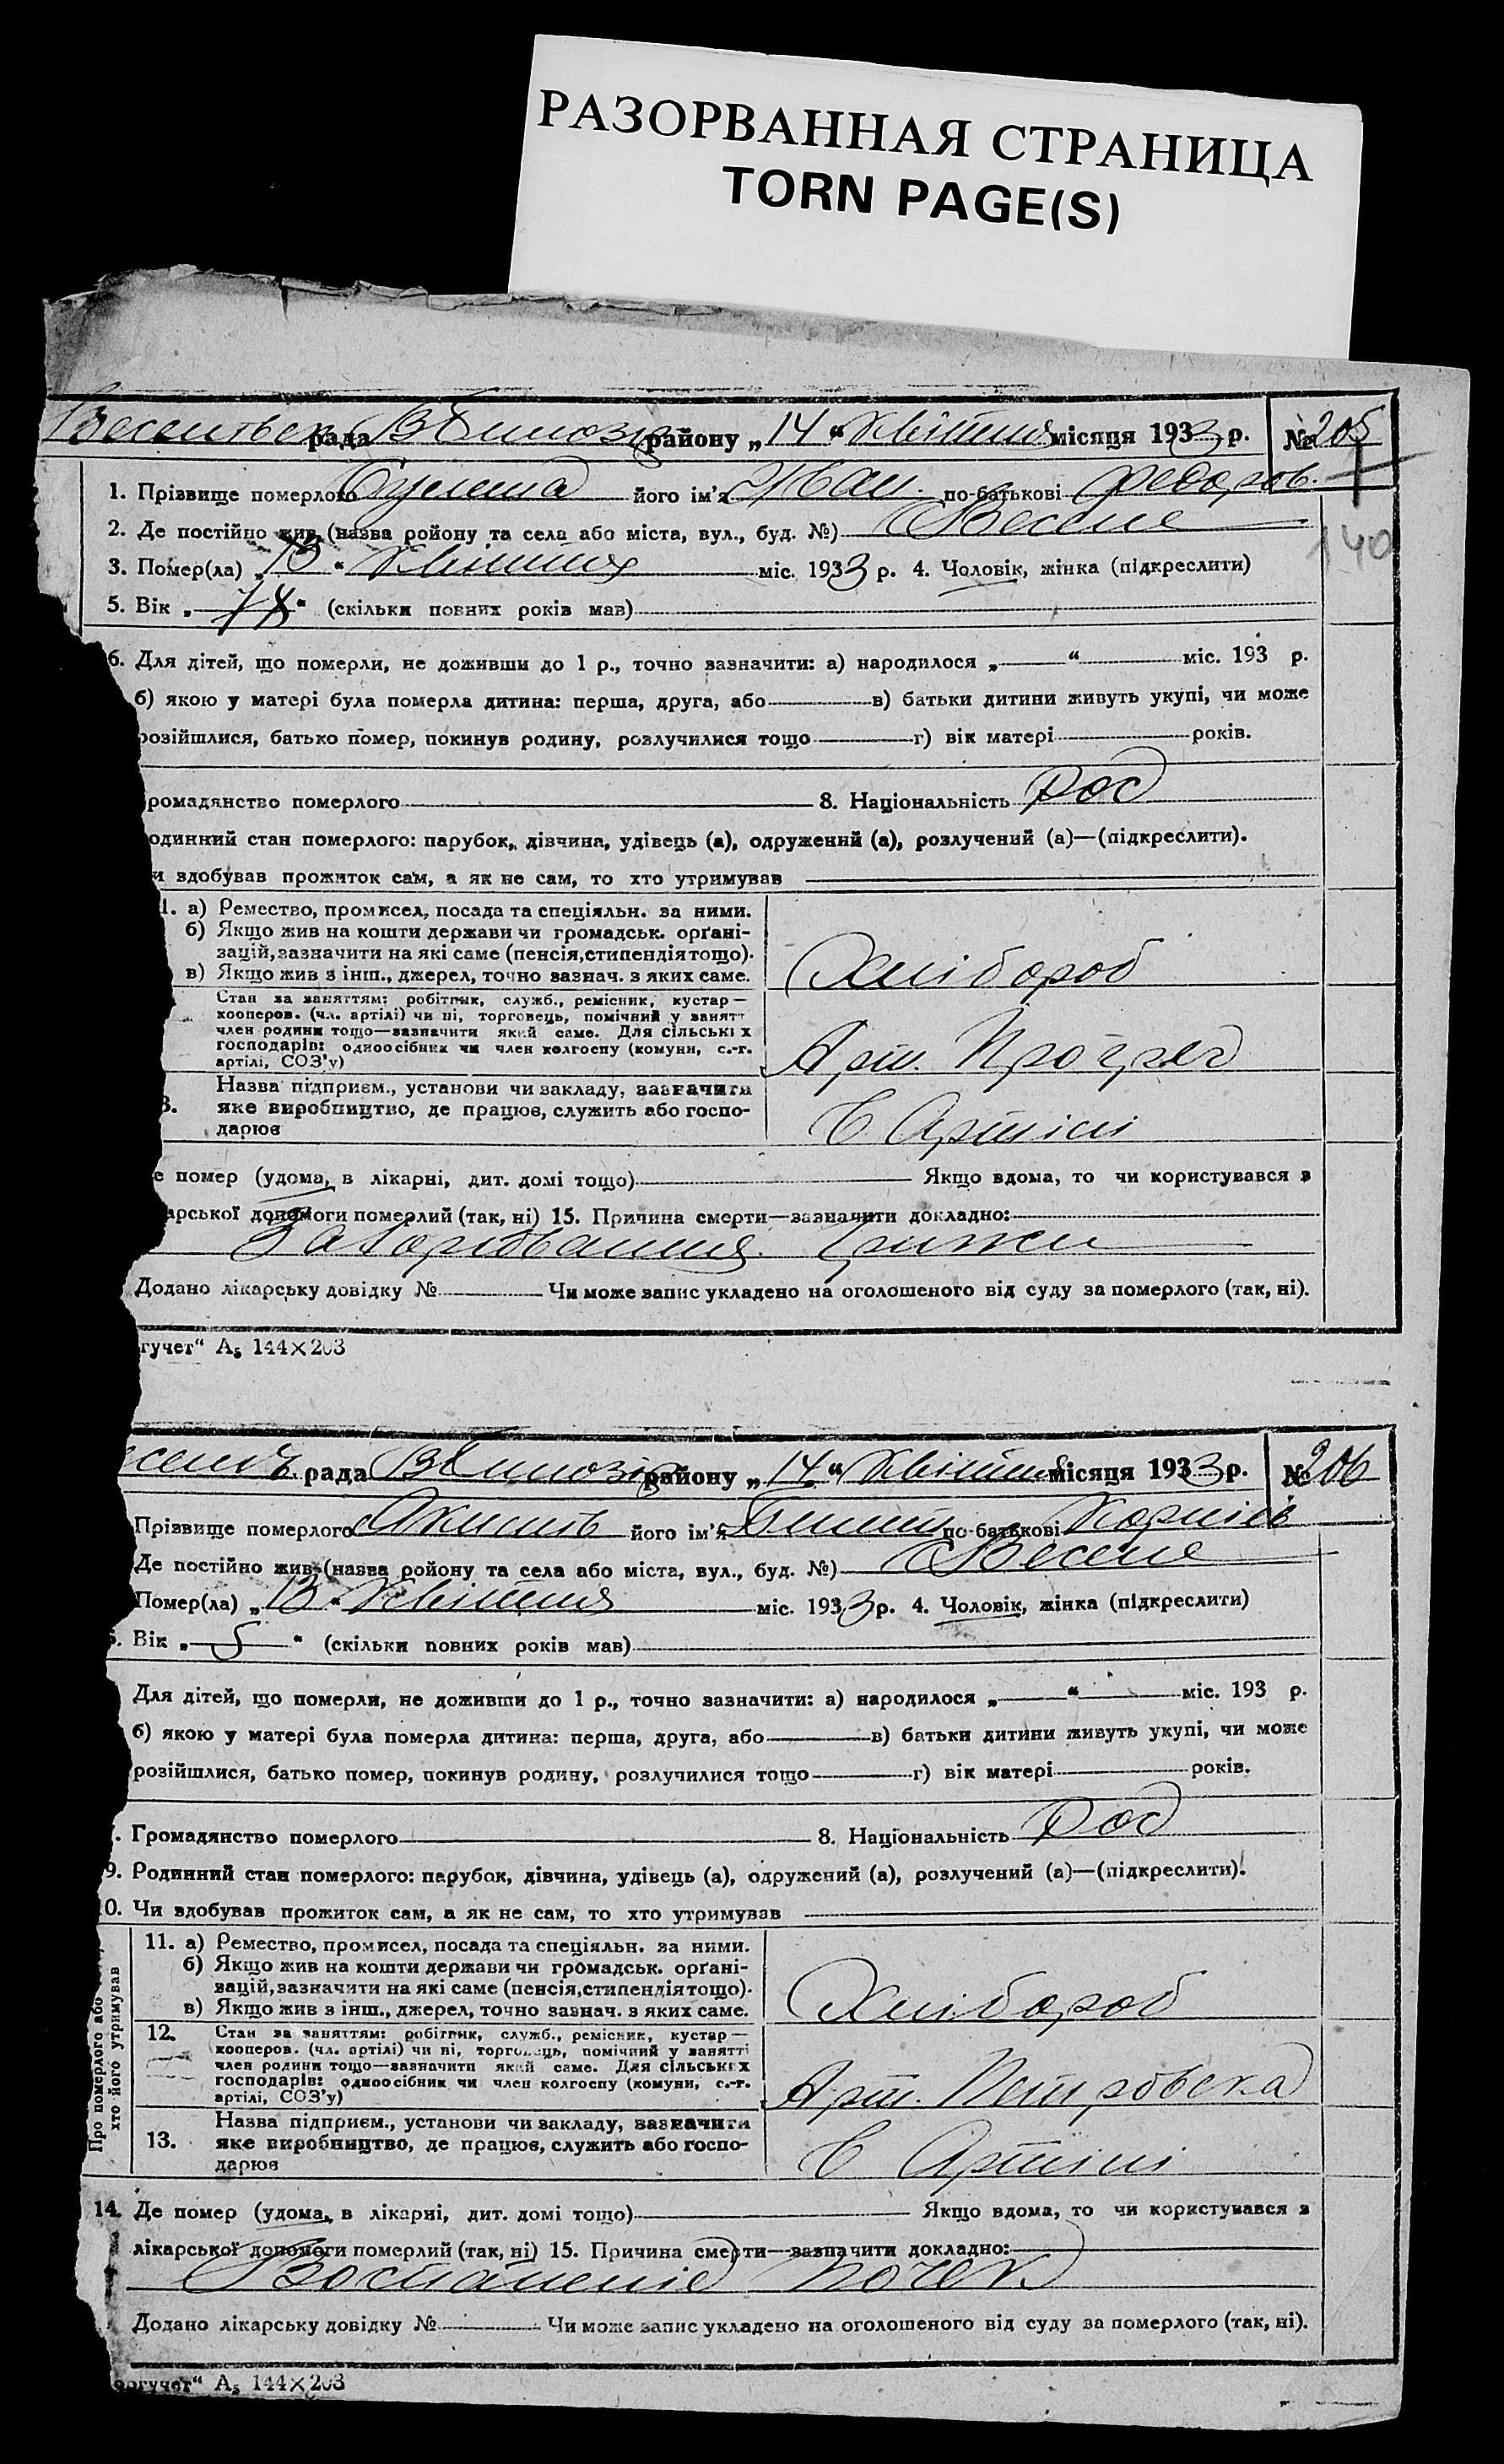 РАЗОРВАННАЯ СТРАНИЦА
TORN PAGE(S)
рада району „14“ квітня місяця 1933 р. № 205
1. Прізвище померлого його ім'я Іван по-батькові Федоров.
140
2. Де постійно жив (назва ройону та села або міста, вул., буд. №) с. Веселе
3. Помер(ла) „13“ квітня міс. 1933 р. 4. Чоловік, жінка (підкреслити)
5. Вік „74“ (скільки повних років мав)
6. Для дітей, що померли, не доживши до 1 р., точно зазначити: а) народилося „ “ міс. 193 р.
б) якою у матері була померла дитина: перша, друга, або в) батьки дитини живуть укупі, чи може
розійшлися, батько помер, покинув родину, розлучилися тощо г) вік матері років.
ромадянство померлого 8. Національність рос
одинний стан померлого: парубок, дівчина, удівець (а), одружений (а), розлучений (а)—(підкреслити).
и здобував прожиток сам, а як не сам, то хто утримував
1. а) Ремество, промисел, посада та спеціяльн. за ними.
б) Якщо жив на кошти держави чи громадськ. орґані-
зацій, зазначити на які саме (пенсія, стипендія тощо).
в) Якщо жив з інш., джерел, точно зазнач. з яких саме.
Хлібороб
Стан за заняттям: робітник, служб., ремісник, кустар—
кооперов. (чл. артілі) чи ні, торговець, помічний у занятт
член родини тощо—зазначити який саме. Для сільськіх
господарів: одноосібник чи член колгоспу (комуни, с.-г.
артілі, СОЗ'у)
Арт. Прогрес
3. Назва підприєм., установи чи закладу, зазначити
яке виробництво, де працює, служить або госпо-
дарює
В Артілі
е помер (удома, в лікарні, дит. домі тощо) Якщо вдома, то чи користувався з
арської допомоги померлий (так, ні) 15. Причина смерти—зазначити докладно:
грижи
Додано лікарську довідку № Чи може запис укладено на оголошеного від суду за померлого (так, ні).
гучет“ А₅ 144×203
рада району „14“ квітня місяця 1933 р. № 206
Прізвище померлого його ім'я по-батькові Корніїв
Де постійно жив (назва ройону та села або міста, вул., буд. №) с. Веселе
Помер(ла) „13“ квітня міс. 1933 р. 4. Чоловік, жінка (підкреслити)
5. Вік „5“ (скільки повних років мав)
Для дітей, що померли, не доживши до 1 р., точно зазначити: а) народилося „ “ міс. 193 р.
б) якою у матері була померла дитина: перша, друга, або в) батьки дитини живуть укупі, чи може
розійшлися, батько помер, покинув родину, розлучилися тощо г) вік матері років.
. Громадянство померлого 8. Національність рос
9. Родинний стан померлого: парубок, дівчина, удівець (а), одружений (а), розлучений (а)—(підкреслити).
0. Чи здобував прожиток сам, а як не сам, то хто утримував
Про померлого або
хто його утримував
11. а) Ремество, промисел, посада та спеціяльн. за ними.
б) Якщо жив на кошти держави чи громадськ. орґані-
зацій, зазначити на які саме (пенсія, стипендія тощо).
в) Якщо жив з інш., джерел, точно зазнач. з яких саме.
Хлібороб
12. Стан за заняттям: робітник, служб., ремісник, кустар—
кооперов. (чл. артілі) чи ні, торговець, помічний у занятті
член родини тощо—зазначити який саме. Для сільськіх
господарів: одноосібник чи член колгоспу (комуни, с.-г.
артілі, СОЗ'у)
Арт. Петровська
13. Назва підприєм., установи чи закладу, зазначити
яке виробництво, де працює, служить або госпо-
дарює
В Артілі
14. Де помер (удома, в лікарні, дит. домі тощо) Якщо вдома, то чи користувався з
лікарської допомоги померлий (так, ні) 15. Причина смерти—зазначити докладно:
почек
Додано лікарську довідку № Чи може запис укладено на оголошеного від суду за померлого (так, ні).
огучет“ А₅ 144×203